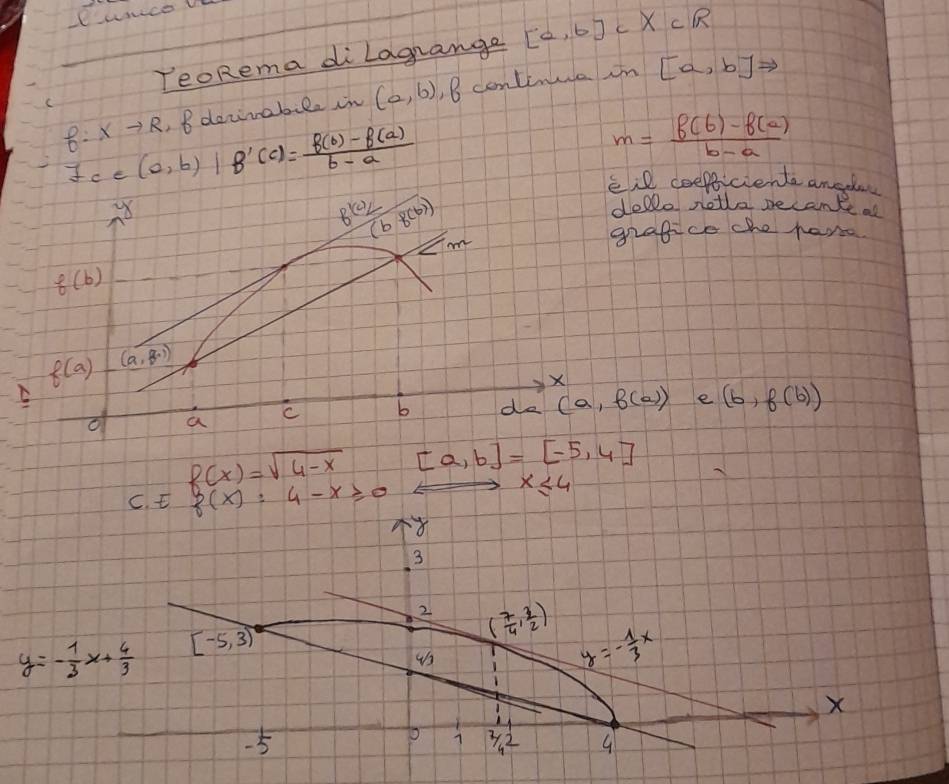 l'unico
Teorema di Lagrange [a,b] ⊂ X ⊂ R
f: X → R, f derivabile in (a,b), f continua in [a,b] ⇒
∃ c ∈ (a,b) | f'(c) = f(b) - f(a) / b - a
m = f(b) - f(a) / b - a
è il coefficiente angolare
della retta secante al
grafico che passa
y
f'(c)
(b f(b))
m
f(b)
f(a)
(a,
x
0 a c b
da (a, f(a)) e (b, f(b))
f(x) = √4-x [a,b] = [-5,4]
C.E f(x): 4-x ≥ 0 ⟺ x ≤ 4
y
3
2
(7/4, 3/2)
[-5,3)
y = -1/3x + 4/3
4/3
y = -1/3x
x
-5 0 1 7/4 2 4